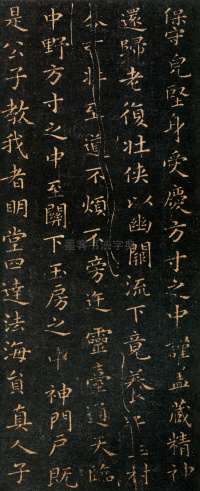 保守皃堅身受慶方寸之中謹盖藏精神
還歸老復壯俠以幽闕流下竟養子玉樹
不可壯至道不煩不旁迕靈臺通天臨
中野方寸之中至關下玉房之中神門戶既
是公子教我者明堂四達法海負真人子